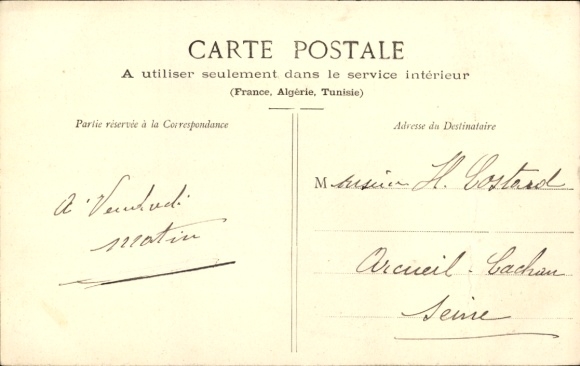 CARTE POSTALE
A utiliser seulement dans le service intérieur
(France, Algérie, Tunisie)
Partie réservée à la Correspondance
Adresse du Destinataire
A Vendredi
matin
Monsieur H. Costard
Arcueil-Cachan
Seine